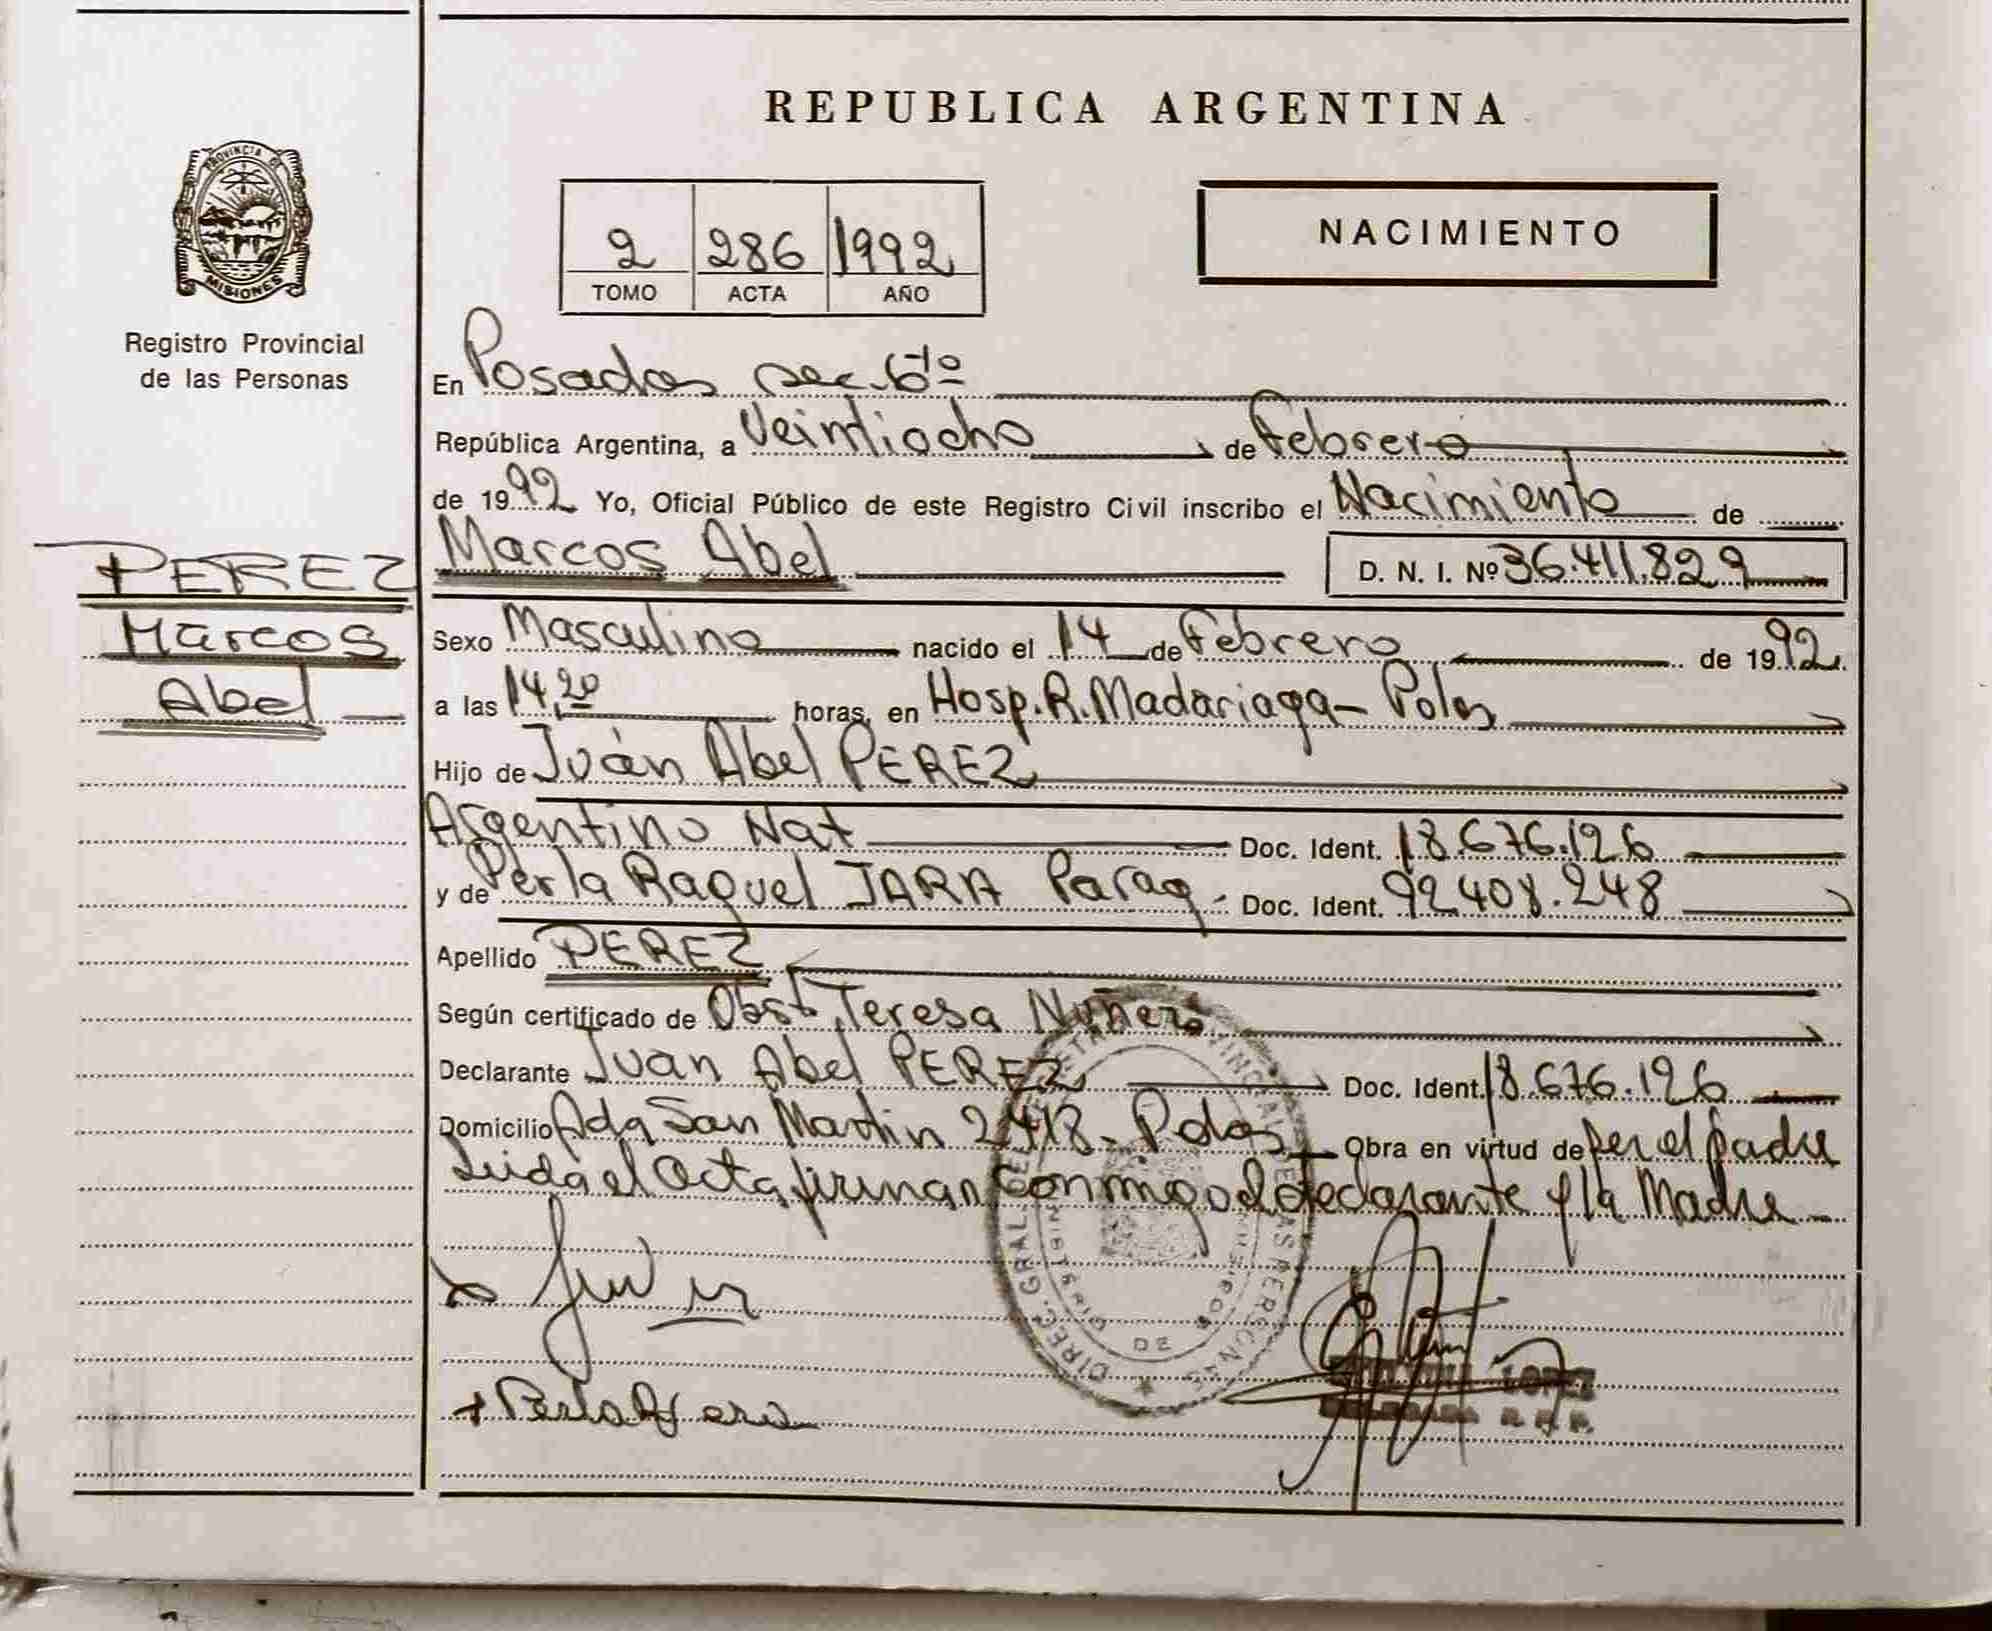 REPUBLICA ARGENTINA
PROVINCIA DE
MISIONES
Registro Provincial
de las Personas
2 286 1992
TOMO ACTA AÑO
NACIMIENTO
En Posadas sec. 6ta
República Argentina, a Veintiocho de Febrero
de 1992 Yo, Oficial Público de este Registro Civil inscribo el Nacimiento de
PEREZ
Marcos
Abel
Marcos Abel D. N. I. Nº 36.411.829
Sexo Masculino nacido el 14 de Febrero de 1992.
a las 14,20 horas, en Hosp. R. Madariaga - Pdas
Hijo de Juán Abel PEREZ
Argentino Nat Doc. Ident. 18.676.126
y de Perla Raquel JARA Parag. Doc. Ident. 92.408.248
Apellido PEREZ
Según certificado de Obst. Teresa Nuñez
Declarante Juan Abel PEREZ Doc. Ident. 18.676.126
Domicilio Adq San Martin 2418 - Pdas Obra en virtud de ser el padre
Leida el Acta, firman conmigo el declarante y la Madre -
DIREC. GRAL. DE
DE MISIONES
LOPEZ